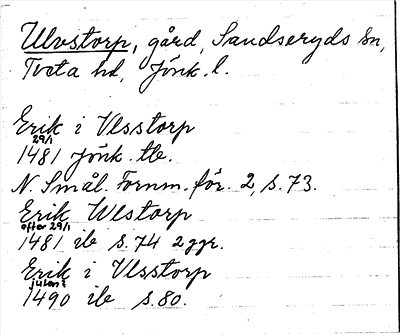 Ulvstorp, gård, Sandseryds sn,
Tveta hd, Jönk. l.
Erik i Vlsstorp
29/1
1481 Jönk. tb.
N. Smål. Fornm. för. 2, s. 73.
Erik Wlstorp
efter 29/1
1481 ib s. 74 2 ggr.
Erik i Vlsstorp
1490 ib s. 80.